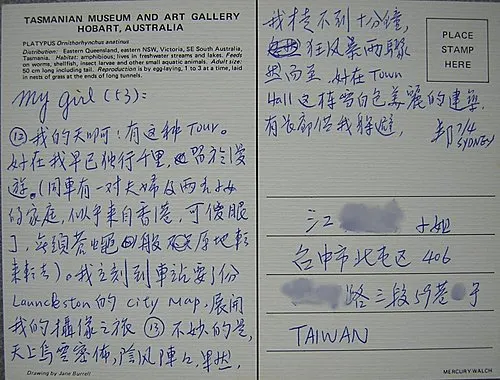 TASMANIAN MUSEUM AND ART GALLERY
HOBART, AUSTRALIA
PLATYPUS Ornithorhynchus anatinus
Distribution: Eastern Queensland, eastern NSW, Victoria, SE South Australia,
Tasmania. Habitat: amphibious; lives in freshwater streams and lakes. Feeds
on worms, shellfish, insect larvae and other small aquatic animals. Adult size:
50 cm long including tail. Reproduction is by egg-laying, 1 to 3 at a time, laid
in nests of grass at the ends of long tunnels.
my girl (53):
⑫我的天啊!有这种Tour。
好在我早已独行千里,習於漫
遊。(同車有一对夫婦及两名小女
的家庭,似乎来自香港,可傻眼
了,無頭苍蝇般原地転
来転去)。我立刻到車站要了份
Launceston的City Map,展開
我的攝像之旅 ⑬不妙的是,
天上烏雲密佈,陰风陣々,果然,
Drawing by Jane Burrell
我撐不到十分鐘,
狂风暴雨驟
然而至,好在Town
Hall这棟留白色美麗的建築,
有長廊供我躲避,
7/4
SYDNEY
PLACE
STAMP
HERE
江 小姐
台中市北屯区406
路三段59巷 号
TAIWAN
MERCURY WALCH